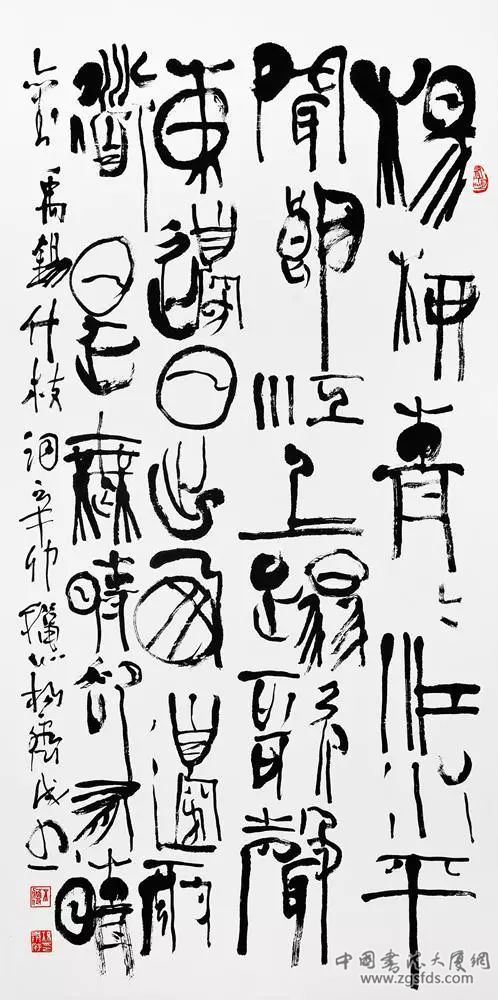 楊柳青〻江水平
聞郎江上踏歌聲
東邊日出西邊雨
道是無晴却有晴
劉禹錫竹枝詞辛卯
中國書法大厦網
www.zgsfds.com